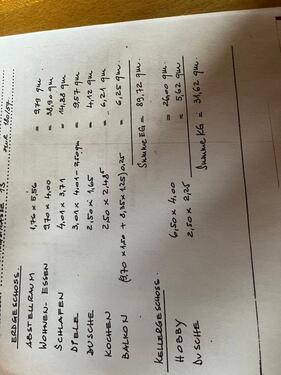 13
ERDGESCHOSS.
ABSTELLRAUM 1,76 x 5,56 = 9,79 qm
WOHNEN-ESSEN 9,70 x 4,00 = 38,90 qm
SCHLAFEN 4,01 x 3,71 = 14,88 qm
DIELE 3,01 x 4,01 - 2,50 qm = 9,57 qm
DUSCHE 2,50 x 1,65 = 4,12 qm
KOCHEN 2,50 x 2,485 = 6,21 qm
BALKON (9,70 x 1,50 + 8,35 x 1,25) 0,25 = 6,25 qm
Summe EG = 89,72 qm.
KELLERGESCHOSS.
HOBBY 6,50 x 4,00 = 26,00 qm
DUSCHE 2,50 x 2,25 = 5,62 qm
Summe KG = 31,62 qm.